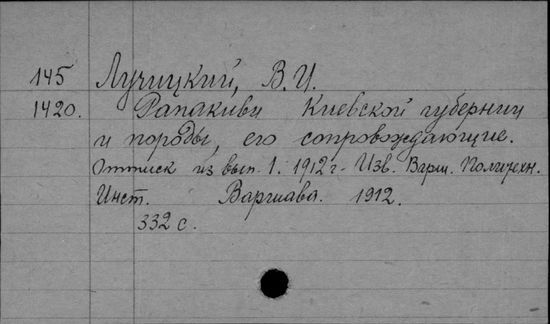 145 Лучицкий, В. И.
1420. Рапакиви Киевской губернии
и породы, его сопровождающие.
Оттиск из вып. 1. 1912 г. Изв. Варш. Политехн.
Инст. Варшава. 1912.
332 с.